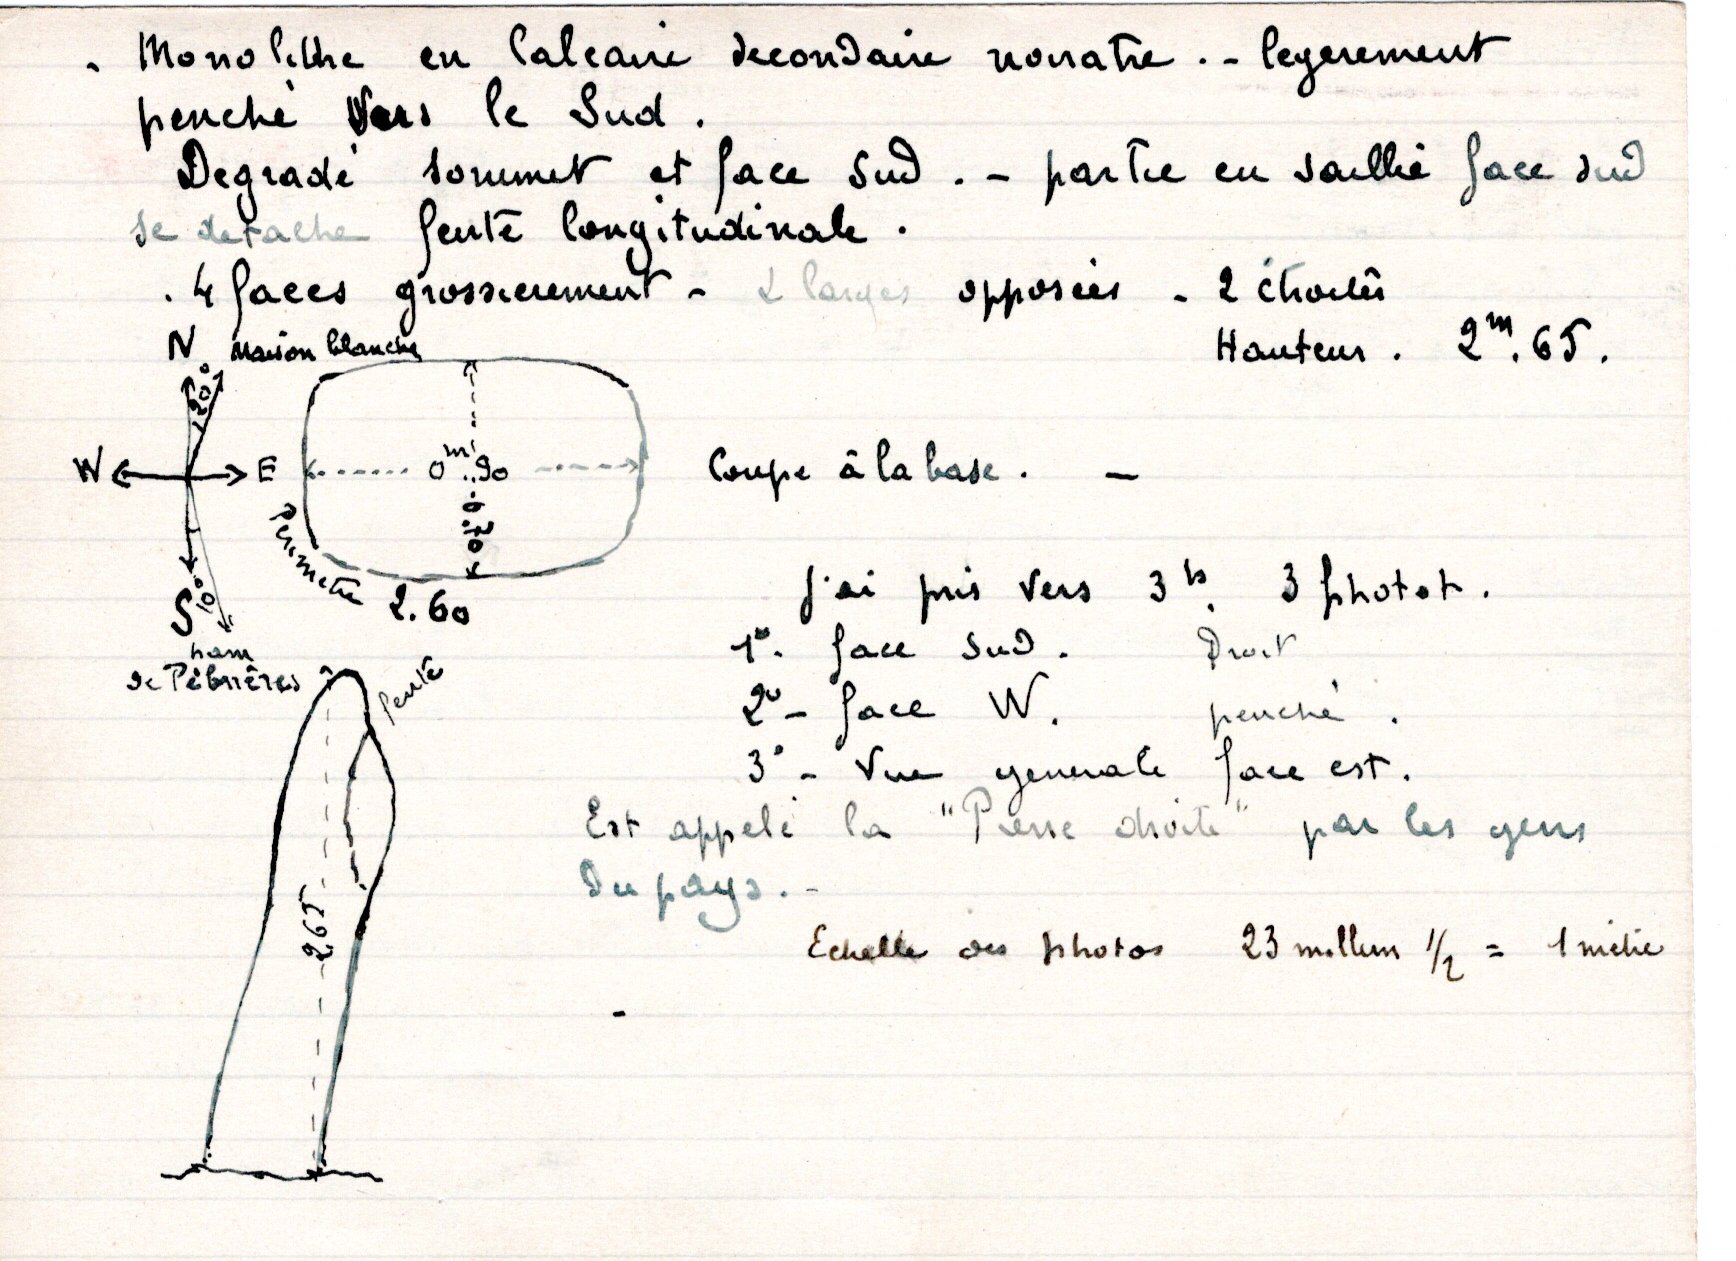 . Monolithe en calcaire secondaire noiratre . - legerement
penché vers le Sud .
Degradé sommet et face Sud . - partie en saillie face sud
se detache fente longitudinale .
. 4 faces grossierement - 2 larges opposées - 2 étroites
Hauteur . 2m.65 .
N Maison blanche
20°
W E
0m.90
0.70
Coupe à la base . -
Perimetre 2.60
S 10°
ham
de Pébrières
fente
2.65
J'ai pris vers 3h. 3 photos .
1°. face Sud . Droit
2° - face W . penché .
3° - Vue generale face est .
Est appelé la "Pierre droite" par les gens
du pays . -
Echelle des photos 23 millim 1/2 = 1 mètre
-